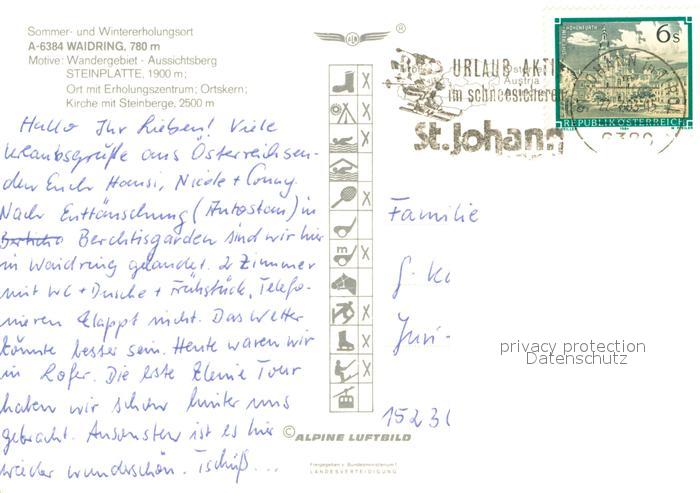 Sommer- und Wintererholungsort
A-6384 WAIDRING, 780 m
Motive: Wandergebiet - Aussichtsberg
STEINPLATTE, 1900 m;
Ort mit Erholungszentrum; Ortskern;
Kirche mit Steinberge, 2500 m
Hallo Ihr Lieben! Viele
Urlaubsgrüße aus Österreich sen-
den Euch Hansi, Nicole + Conny.
Nach Enttäuschung (Autostau) in
Berchtisgarden sind wir hier
in Waidring gelandet. 2 Zimmer
mit WC + Dusche + Frühstück, Telefo-
nieren klappt nicht. Das Wetter
könnte besser sein. Heute waren wir
in Lofer. Die erste kleine Tour
haben wir schon hinter uns
gebracht. Ansonsten ist es hier
wieder wunderschön. Tschüß...
®
m
URLAUB AKTI
im schneesicheren
St.Johann
Österreich
Austria
6s
REPUBLIK ÖSTERREICH
6380
Familie
G. Kı
Juri-
privacy protection
Datenschutz
1523
© ALPINE LUFTBILD
Freigegeben v. Bundesministerium f.
LANDESVERTEIDIGUNG